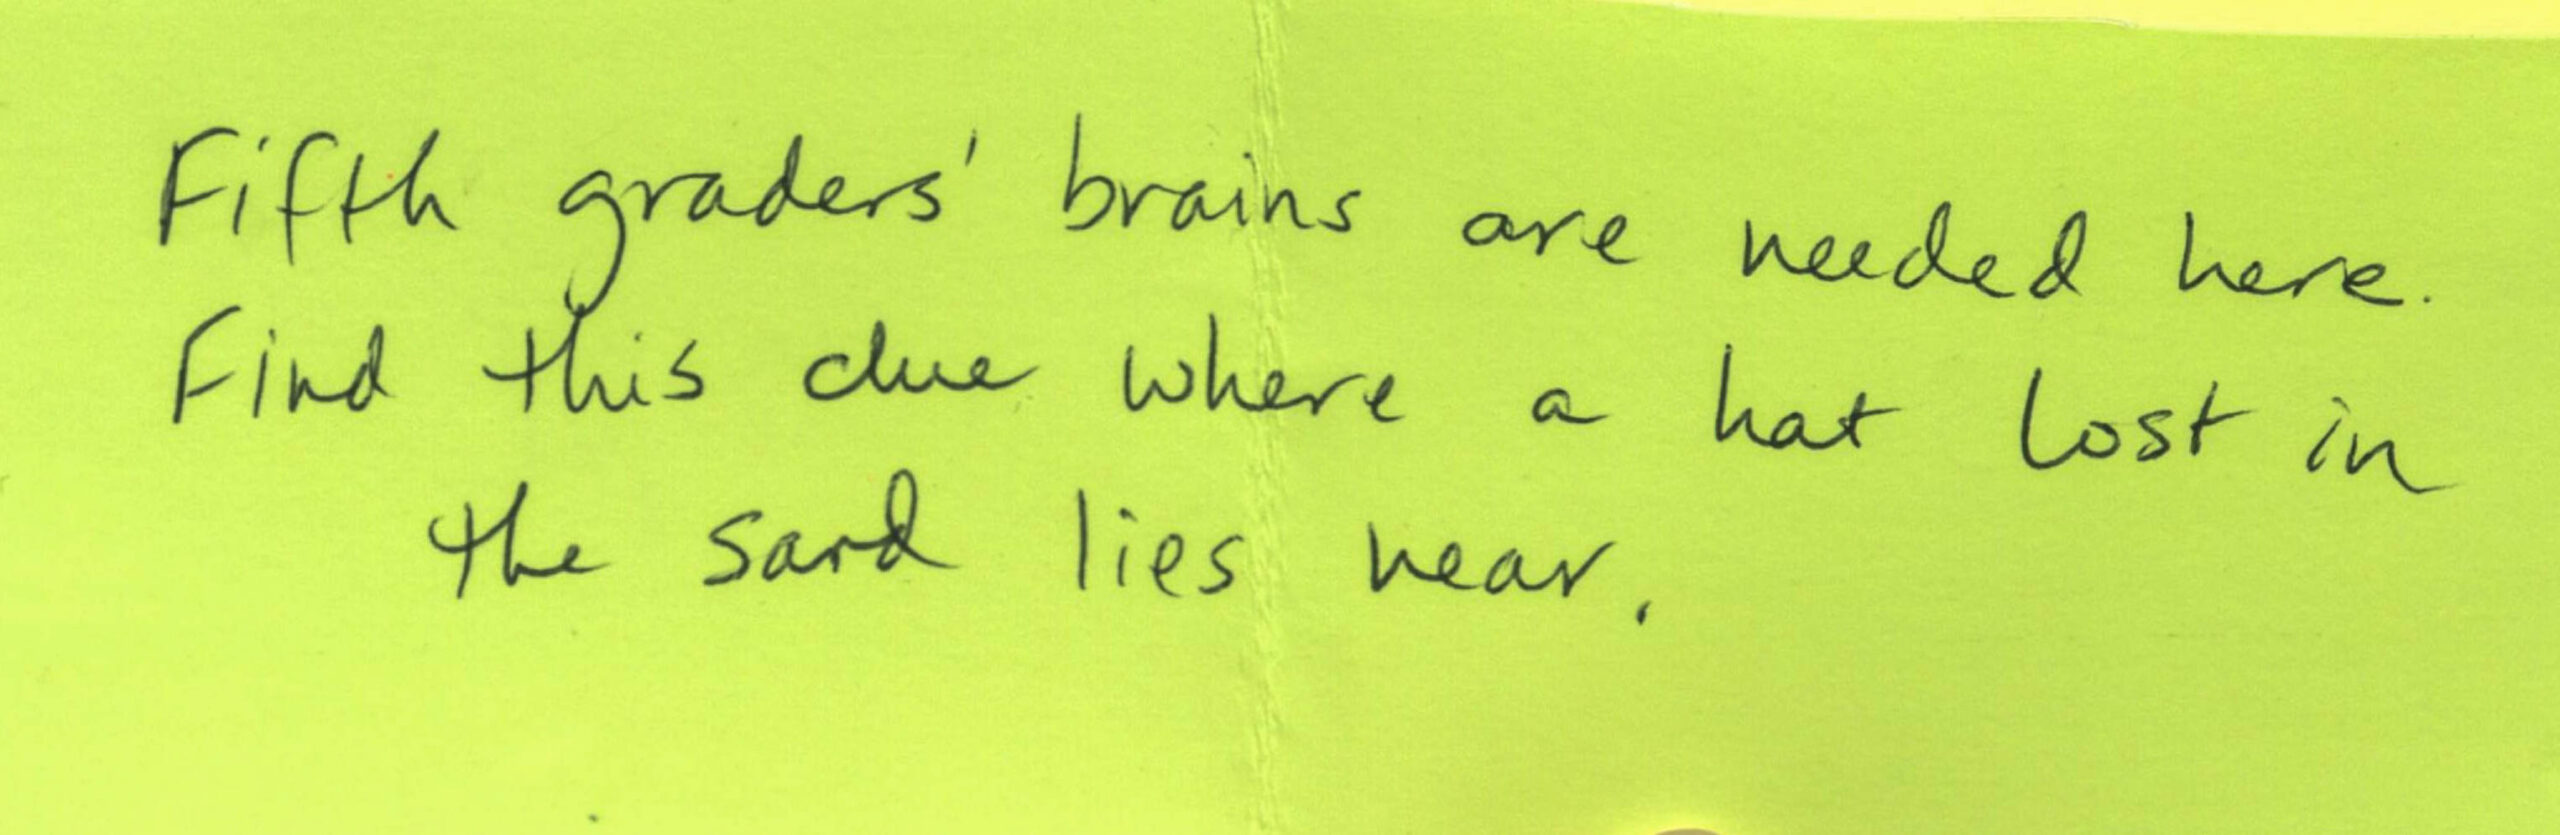 Fifth graders' brains are needed here.
Find this clue where a hat lost in
the sand lies near.